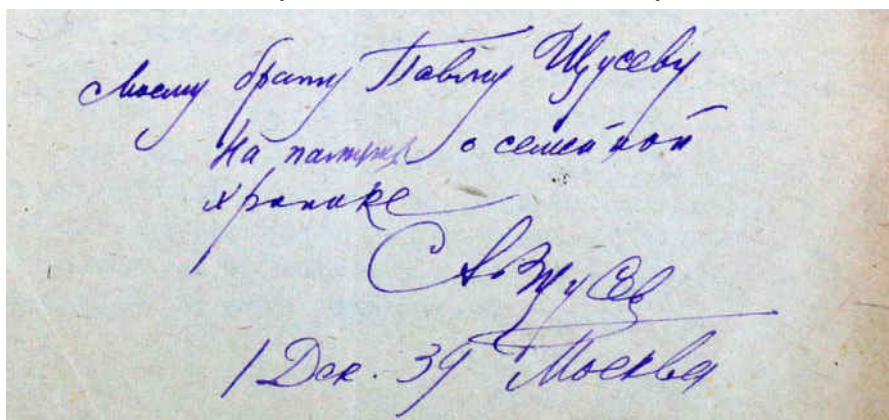 Моему брату Павлу Щусеву
На память о семейной
хронике
А Щусев
1 Дек. 39 Москва